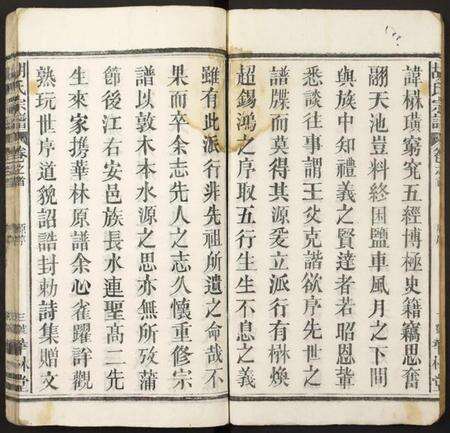 諱楙璜窮究五經博極史籍竊思奮
翮天池豈料終困鹽車風月之下間
與族中知禮義之賢達者若昭恩輩
悉談往事謂王炎克諧欲序先世之
譜牒而莫得其源爰立派行有楙煥
超錫鴻之序取五行生生不息之義
雖有此派行非先祖所遺之命哉不
果而卒余志先人之志久懷重修宗
譜以敦木本水源之思亦無所攷蒲
節後江右安邑族長水連聖高二先
生來家携華林原譜余心雀躍許觀
熟玩世序道貌詔誥封勅詩集贈文
胡氏宗譜
卷之首
華林堂